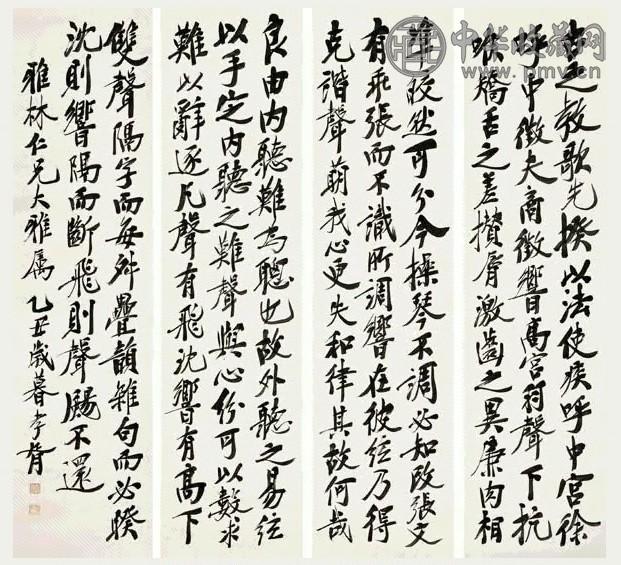 古之教歌先揆以法使疾呼中宮徐
呼中徵夫商徵響高宮羽聲下抗
喉矯舌之差攢脣激齒之異廉肉相
準皎然可分今操琴不調必知改張文
有乖張而不識所調響在彼絃乃得
克諧聲萌我心更失和律其故何哉
良由內聽難為聰也故外聽之易絃
以手定內聽之難聲與心紛可以數求
難以辭逐凡聲有飛沈響有高下
雙聲隔字而每舛疊韻雜句而必睽
沈則響隔而斷飛則聲颺不還
雅林仁兄大雅属 乙丑歲暮孝胥
中华收藏网
www.pmv.cn